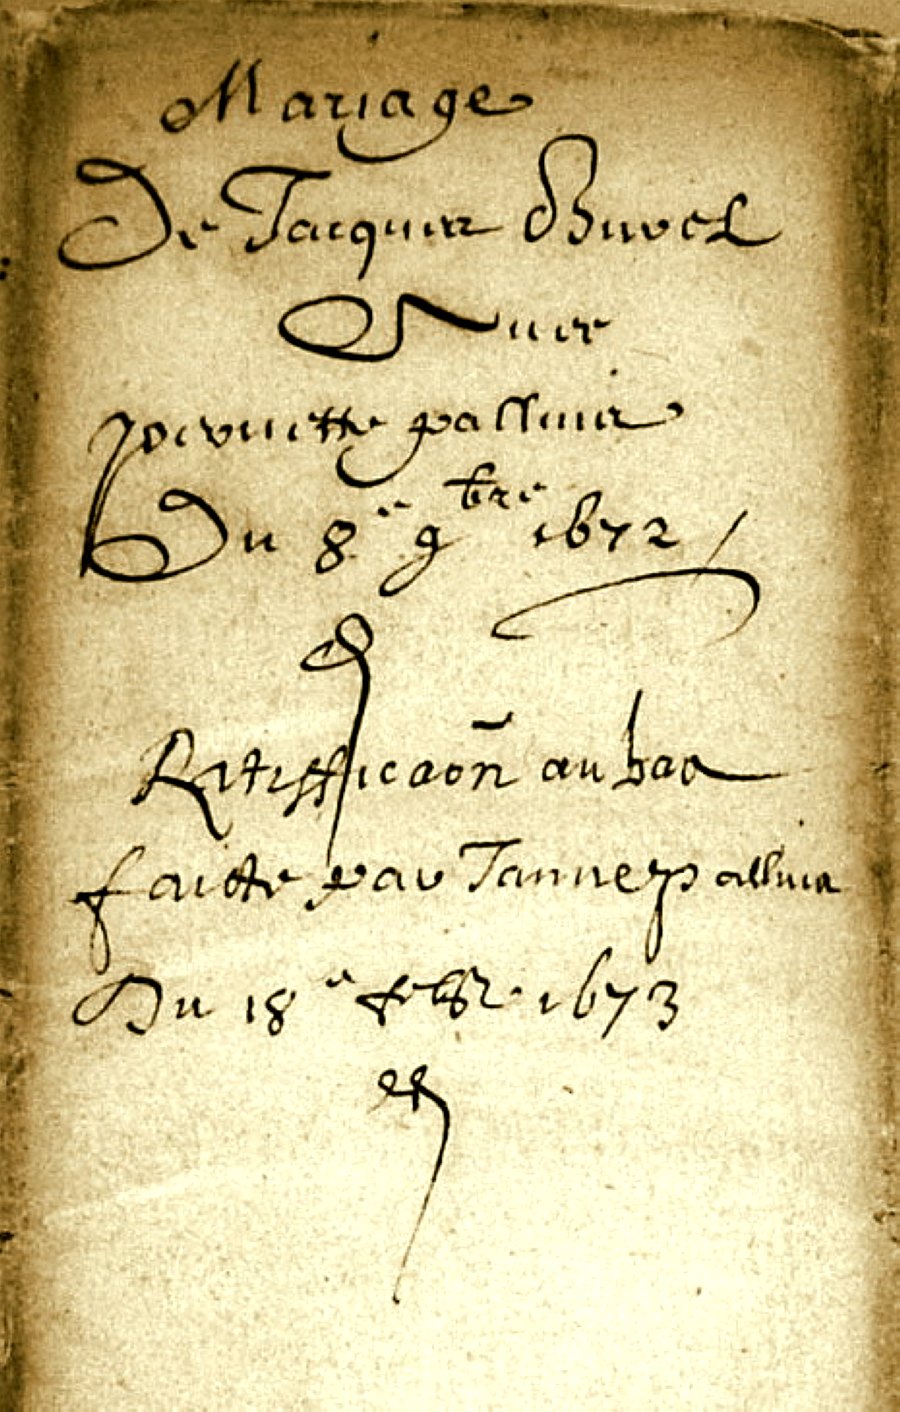 Mariage
De Jacques Buvel
Avec
pernette palluis
Du 8e 9bre 1672
Ratifficaõn au bas
faicte par Janne palluis
Du 18e febr 1673